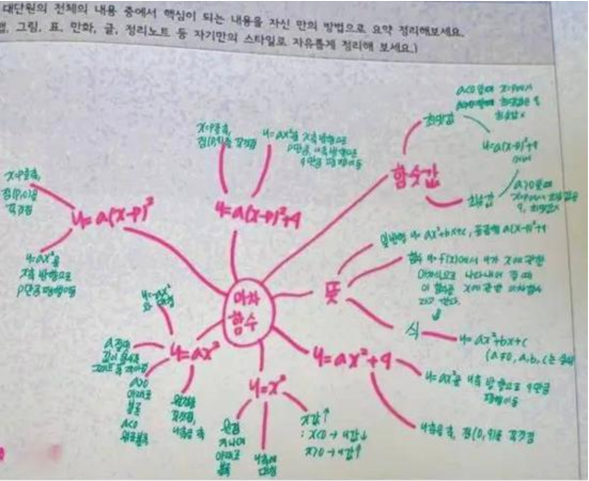 대단원의 전체의 내용 중에서 핵심이 되는 내용을 자신 만의 방법으로 요약 정리해보세요.
그림, 표, 만화, 글, 정리노트 등 자기만의 스타일로 자유롭게 정리해 보세요.)
이차
함수
y=a(x-p)²
x=p를 축,
점(p,0)을
꼭짓점
y=ax²을
x축 방향으로
p만큼 평행이동
y=a(x-p)²+q
x=p를 축,
점(p,q)를 꼭짓점
y=ax²을 x축 방향으로
p만큼, y축 방향으로
q만큼 평행이동
함숫값
최댓값
a<0일 때
최솟값
a>0일 때
y=a(x-p)²+q
에서
뜻
일반형 y=ax²+bx+c, 표준형 a(x-p)²+q
함수 y=f(x)에서 y가 x에 관한
이차식으로 나타내어 질 때
이 함수를 x에 관한 이차함수
라고 한다.
식
y=ax²+bx+c
(a≠0, a,b,c는 상수
y=ax²+q
y=ax²을 y축 방향으로 q만큼
평행이동
y축을 축, 점(0,q)을 꼭짓점
y=x²
원점
지나며
아래로
볼록
y축에
대칭
x값↑
: x<0 → y값↓
x>0 → y값↑
y=ax²
y=-ax²
와
a>0
아래로
볼록
a<0
위로볼록
원점을
꼭짓점,
y축을 축